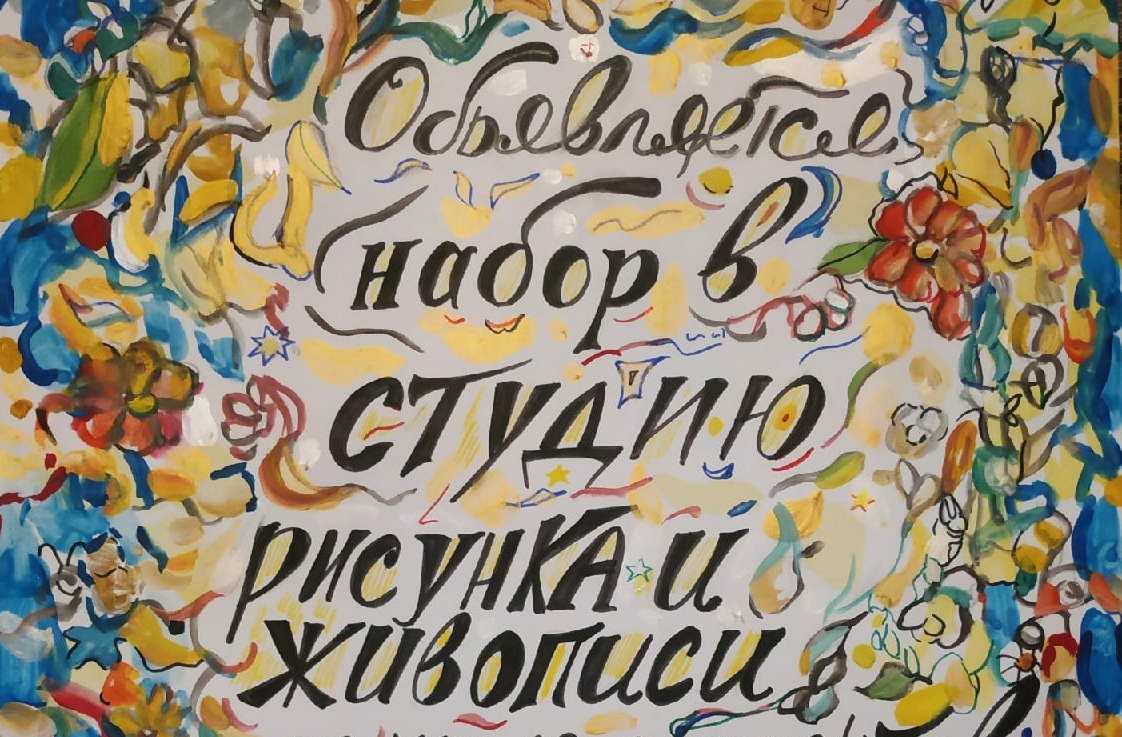 Объявляется
набор в
студию
рисунка и
живописи